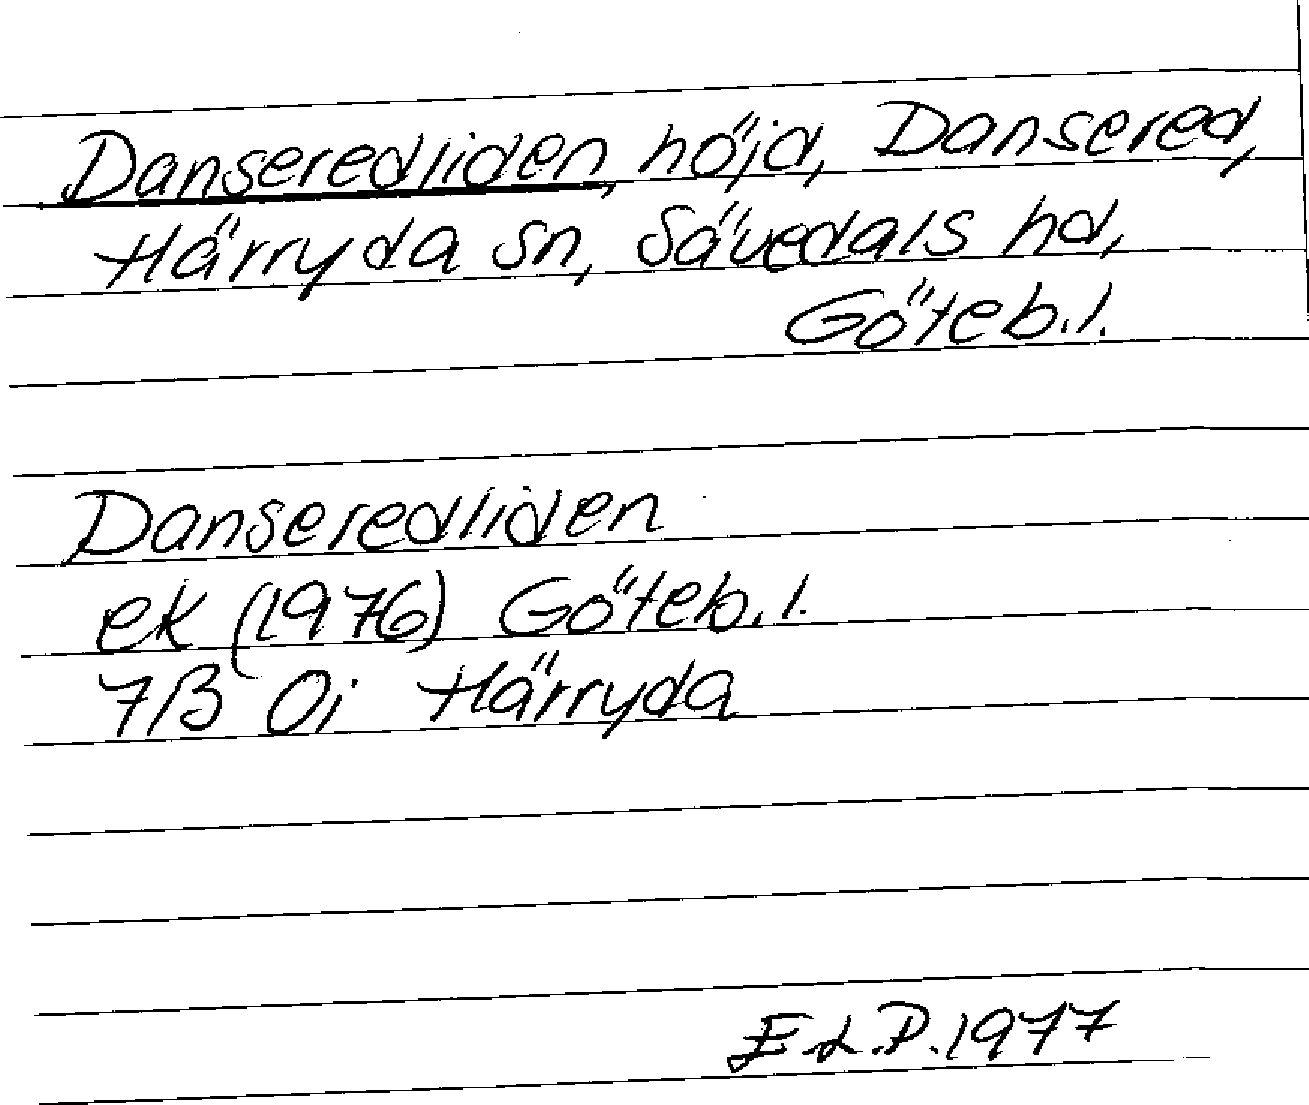 Danseredliden, höjd, Dansered,
Härryda sn, Sävedals hd,
Göteb.l.
Danseredliden
ek (1976) Göteb.l.
7B 0i Härryda
E.L.P. 1977